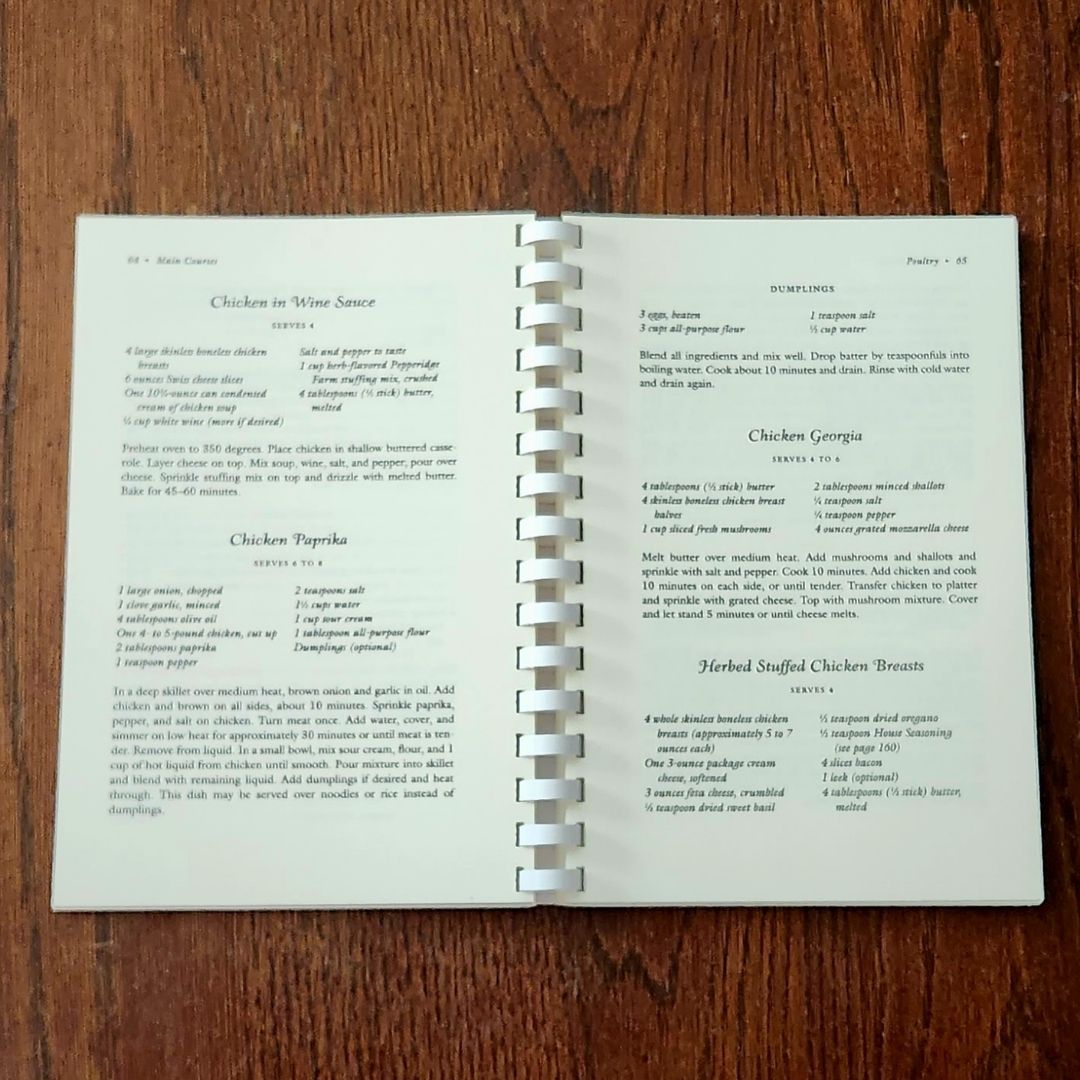 64 • Main Courses
Chicken in Wine Sauce
SERVES 4
4 large skinless boneless chicken
breasts
6 ounces Swiss cheese slices
One 10¾-ounce can condensed
cream of chicken soup
¼ cup white wine (more if desired)
Salt and pepper to taste
1 cup herb-flavored Pepperidge
Farm stuffing mix, crushed
4 tablespoons (½ stick) butter,
melted
Preheat oven to 350 degrees. Place chicken in shallow buttered casse-
role. Layer cheese on top. Mix soup, wine, salt, and pepper, pour over
cheese. Sprinkle stuffing mix on top and drizzle with melted butter.
Bake for 45–60 minutes.
Chicken Paprika
SERVES 6 TO 8
1 large onion, chopped
1 clove garlic, minced
4 tablespoons olive oil
One 4- to 5-pound chicken, cut up
2 tablespoons paprika
1 teaspoon pepper
2 teaspoons salt
1½ cups water
1 cup sour cream
1 tablespoon all-purpose flour
Dumplings (optional)
In a deep skillet over medium heat, brown onion and garlic in oil. Add
chicken and brown on all sides, about 10 minutes. Sprinkle paprika,
pepper, and salt on chicken. Turn meat once. Add water, cover, and
simmer on low heat for approximately 30 minutes or until meat is ten-
der. Remove from liquid. In a small bowl, mix sour cream, flour, and 1
cup of hot liquid from chicken until smooth. Pour mixture into skillet
and blend with remaining liquid. Add dumplings if desired and heat
through. This dish may be served over noodles or rice instead of
dumplings.
Poultry • 65
DUMPLINGS
3 eggs, beaten
3 cups all-purpose flour
1 teaspoon salt
½ cup water
Blend all ingredients and mix well. Drop batter by teaspoonfuls into
boiling water. Cook about 10 minutes and drain. Rinse with cold water
and drain again.
Chicken Georgia
SERVES 4 TO 6
4 tablespoons (½ stick) butter
4 skinless boneless chicken breast
halves
1 cup sliced fresh mushrooms
2 tablespoons minced shallots
¼ teaspoon salt
¼ teaspoon pepper
4 ounces grated mozzarella cheese
Melt butter over medium heat. Add mushrooms and shallots and
sprinkle with salt and pepper. Cook 10 minutes. Add chicken and cook
10 minutes on each side, or until tender. Transfer chicken to platter
and sprinkle with grated cheese. Top with mushroom mixture. Cover
and let stand 5 minutes or until cheese melts.
Herbed Stuffed Chicken Breasts
SERVES 4
4 whole skinless boneless chicken
breasts (approximately 5 to 7
ounces each)
One 3-ounce package cream
cheese, softened
3 ounces feta cheese, crumbled
½ teaspoon dried sweet basil
½ teaspoon dried oregano
½ teaspoon House Seasoning
(see page 160)
4 slices bacon
1 leek (optional)
4 tablespoons (½ stick) butter,
melted